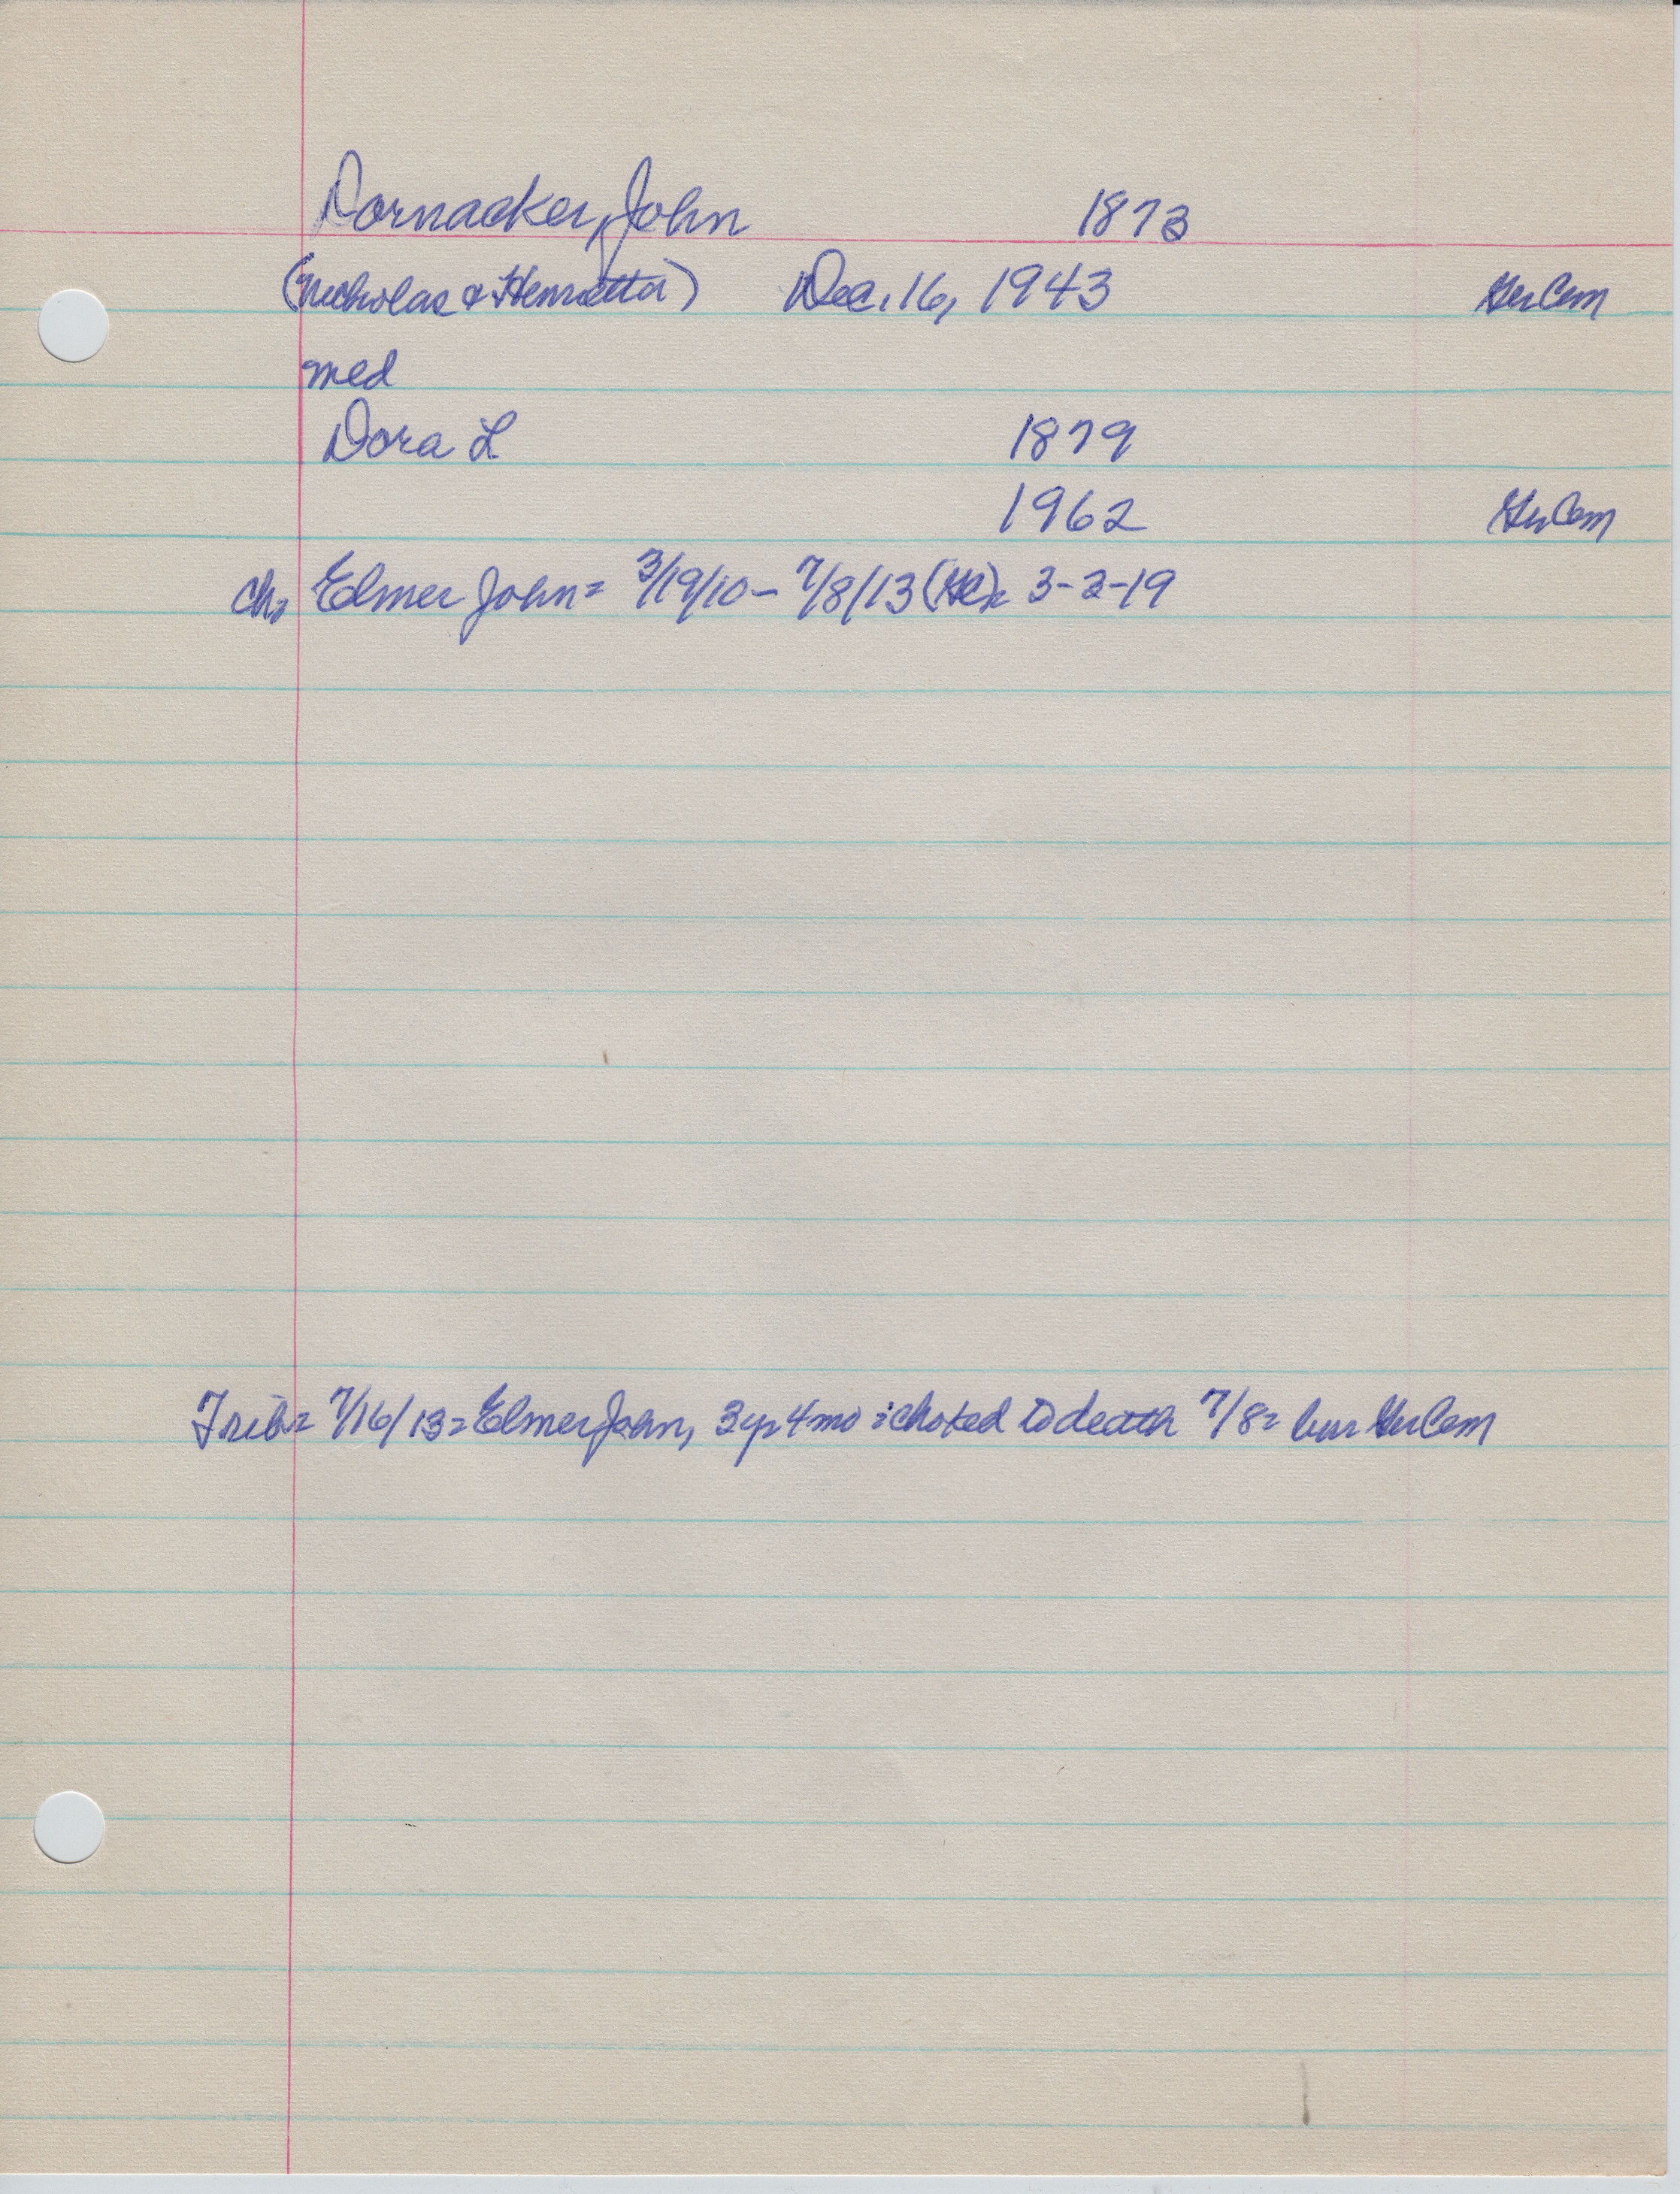 Dornacker, John 1873
(Nicholas & Henrietta) Dec. 16, 1943 Ger Cem
med
Dora L 1879
1962 Ger Cem
ch, Elmer John = 3/19/10 - 7/8/13 = 3-3-19
Trib = 7/16/13 = Elmer John, 3 yr 4 mo : choked to death 7/8 = bur Ger Cem